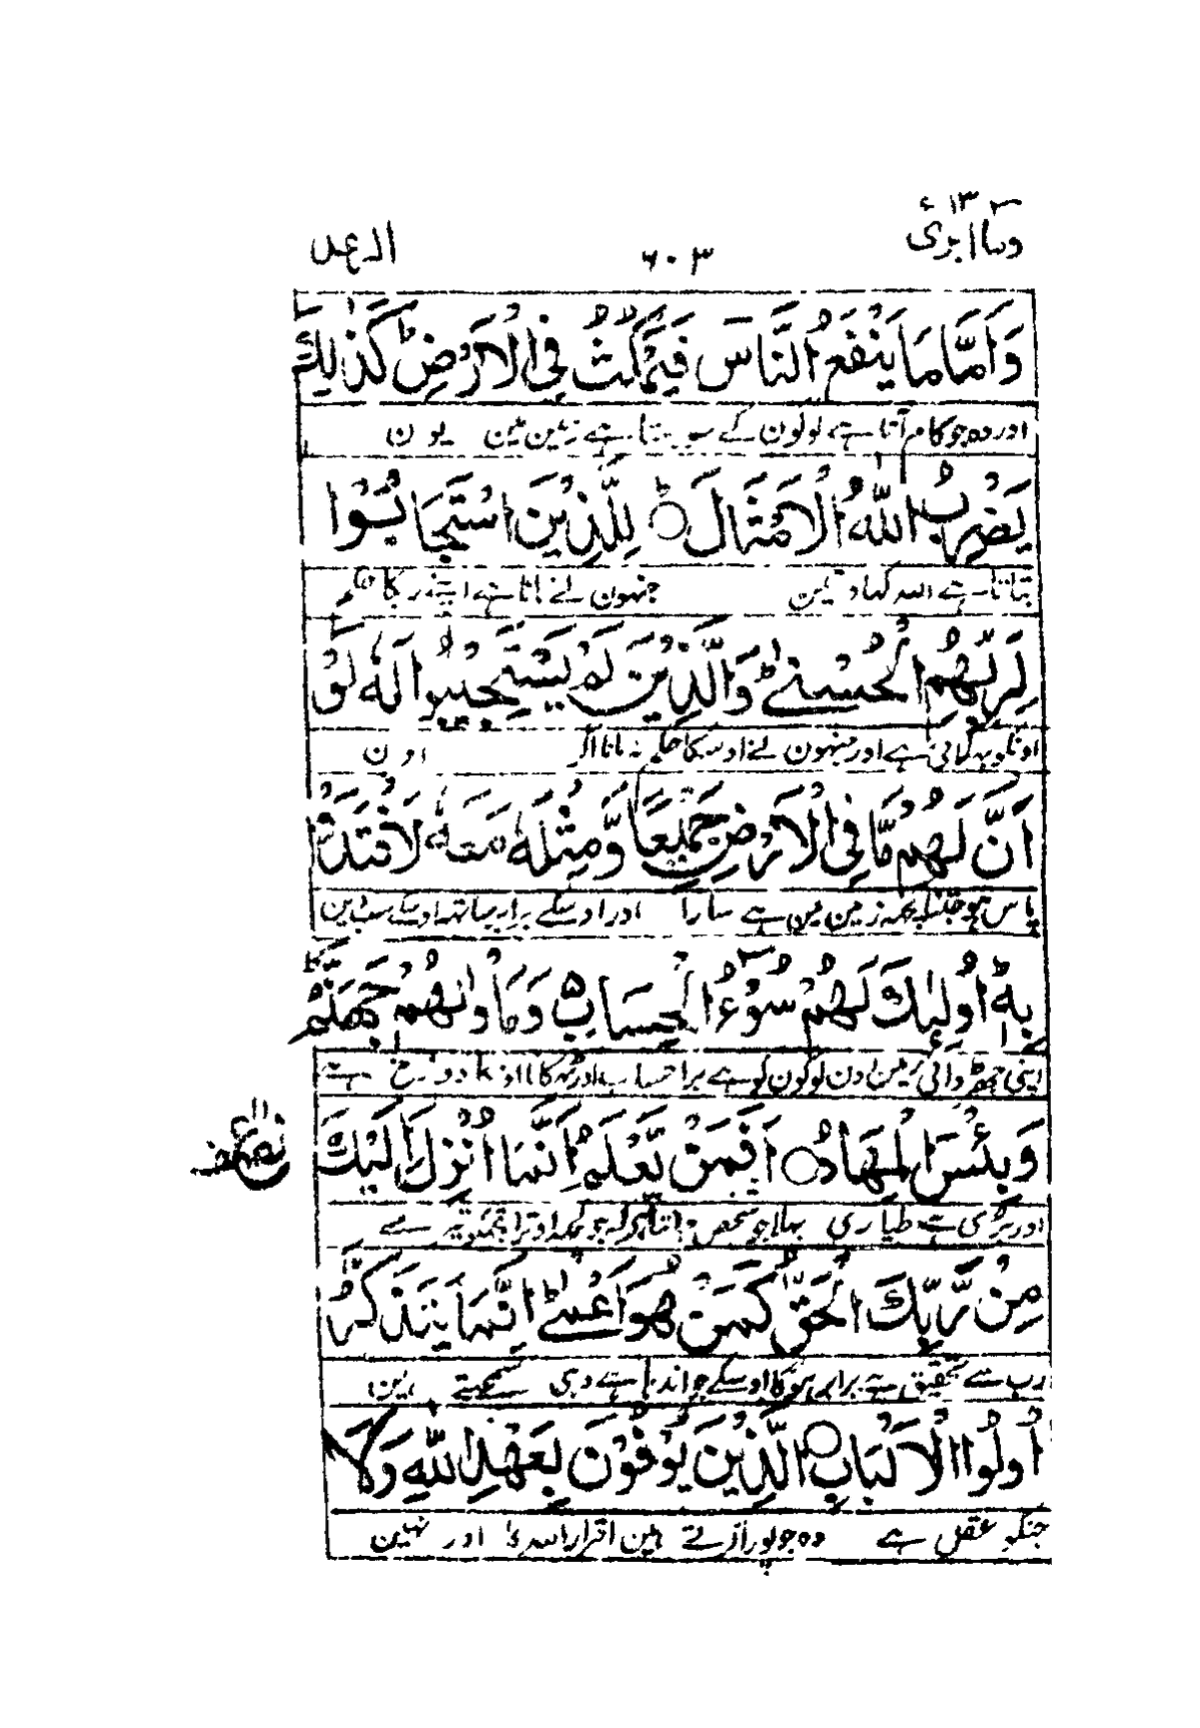 وما ابری ۱۳
۶۰۳
الرعد
وَاَمَّا مَا يَنْفَعُ النَّاسَ فَيَمْكُثُ فِي الْاَرْضِ ؕ كَذٰلِكَ
اور وہ جو کام آتا ہے لوگون کے سو رہتا ہے زمین مین یون
يَضْرِبُ اللّٰهُ الْاَمْثَالَ ؕ لِلَّذِيْنَ اسْتَجَابُوْا
بتاتا ہے اللہ کہاوتین جنہون نے مانا ہے اپنے رب کا حکم
لِرَبِّهِمُ الْحُسْنٰى ؕ وَالَّذِيْنَ لَمْ يَسْتَجِيْبُوْا لَهٗ لَوْ
اونکو بہلائی ہے اور جنہون نے اوسکا حکم نہ مانا اگر اون
اَنَّ لَهُمْ مَّا فِي الْاَرْضِ جَمِيْعًا وَّمِثْلَهٗ مَعَهٗ لَافْتَدَوْا
پاس ہو جتنا کچھ زمین مین ہے سارا اور اوسکے برابر ساتھ اوسکے سب دین
بِهٖ ؕ اُولٰٓئِكَ لَهُمْ سُوْٓءُ الْحِسَابِ ۵ وَمَاْوٰىهُمْ جَهَنَّمُ
اپنی چھڑوائی مین اون لوگون کو ہے برا حساب اور ٹھکانا اونکا دوزخ ہے
وَبِئْسَ الْمِهَادُ ○ اَفَمَنْ يَّعْلَمُ اَنَّمَآ اُنْزِلَ اِلَيْكَ
اور بری ہے طیاری بہلا جو شخص جانتا ہو کہ جو کچھ اوترا تجھکو تیرے
مِنْ رَّبِّكَ الْحَقُّ كَمَنْ هُوَ اَعْمٰى ؕ اِنَّمَا يَتَذَكَّرُ
رب سے تحقیق ہے برابر ہوگا اوسکے جو اندہا ہے وہی سمجھتے ہین
اُولُوا الْاَلْبَابِ ○ الَّذِيْنَ يُوْفُوْنَ بِعَهْدِ اللّٰهِ وَلَا
جنکو عقل ہے وہ جو پورا کرتے ہین اقرار اللہ کا اور نہین